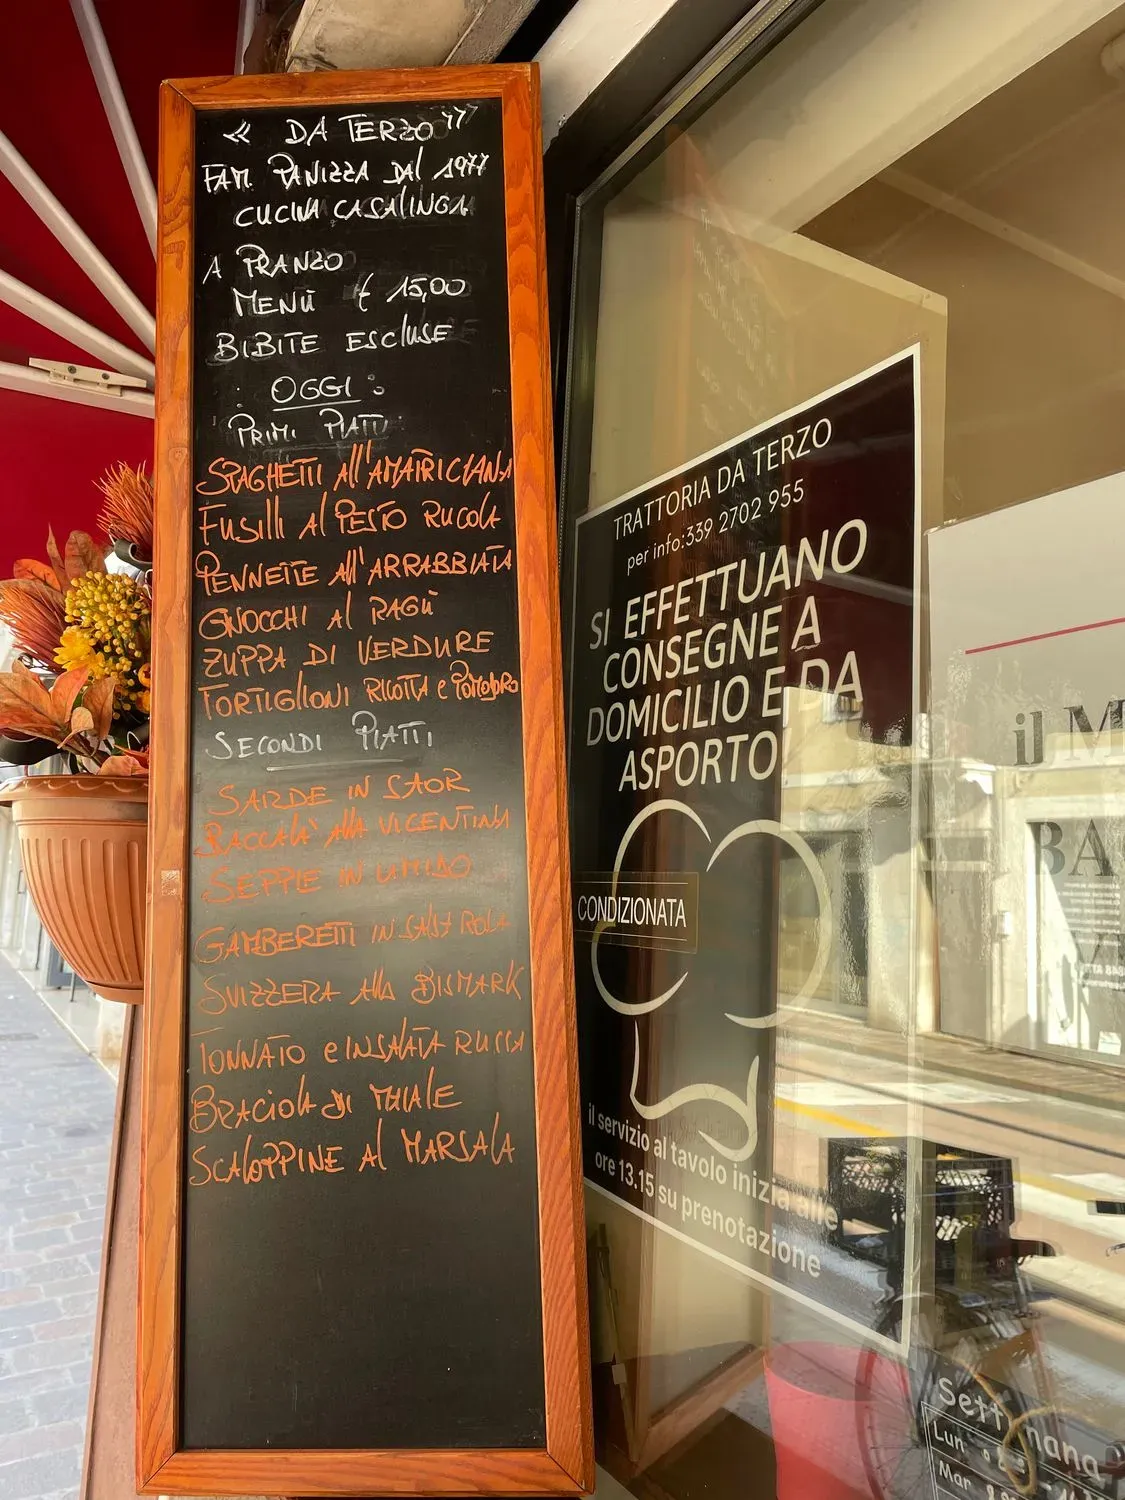 « DA TERZO ”
FAM. PANIZZA DAL 1977
CUCINA CASALINGA
A PRANZO
MENÙ € 15,00
BIBITE ESCLUSE
: OGGI :
PRIMI PIATTI
SPAGHETTI All'AMATRICIANA
FUSILLI Al PESTO RUCOLA
PENNETTE All'ARRABBIATA
GNOCCHI Al RAGÙ
ZUPPA DI VERDURE
TORTIGLIONI RICOTTA e POMODORO
SECONDI PIATTI
SARDE IN SAOR
BACCALA' Alla VICENTINA
SEPPIE IN UMIDO
GAMBERETTI IN SALSA ROSA
SVIZZERA Alla BISMARK
TONNATO e INSALATA RUSSA
BRACIOLA DI MAIALE
SCALOPPINE Al MARSALA
TRATTORIA DA TERZO
per info:339 2702 955
SI EFFETTUANO
CONSEGNE A
DOMICILIO E DA
ASPORTO!
CONDIZIONATA
il servizio al tavolo inizia alle
ore 13.15 su prenotazione
il M
BA
Lun
Mar